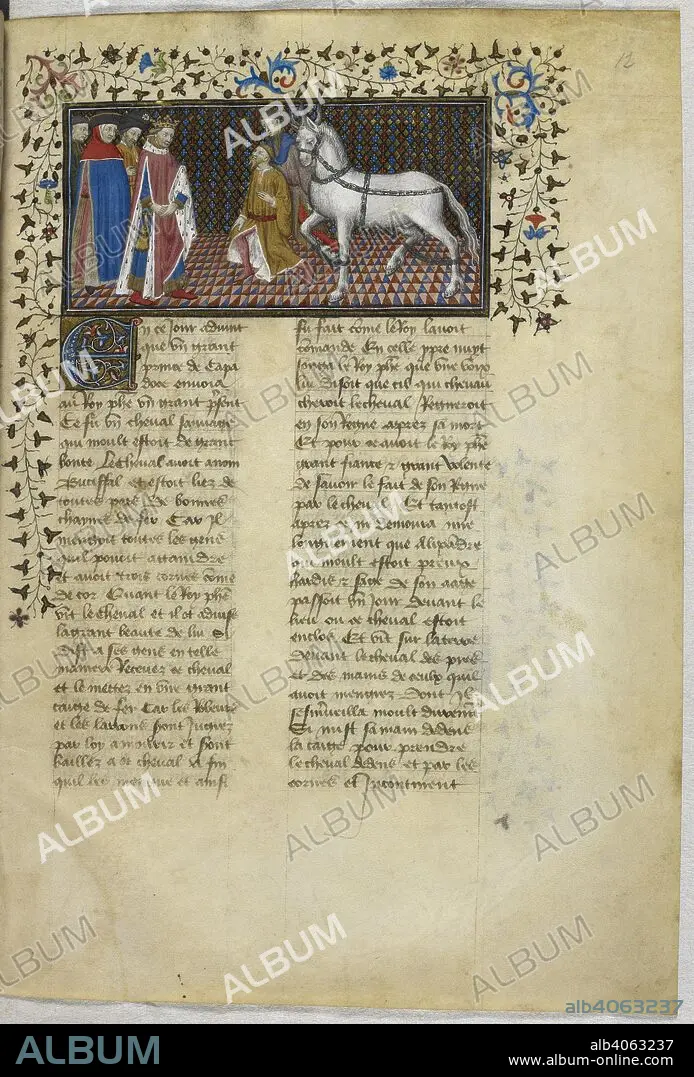 12
En ce Jour advint
que un grant
prince de Capa
doce envoia
au Roy phe un grant present
Ce fu un cheval sauvage
qui moult estoit de grant
bonte Le cheval avoit a nom
Bucifal et estoit liez de
toutes pars de bonnes
chaines de fer Car Il
mengoit toutes les gens
quil pouoit attaindre
et avoit trois cornes come
de cor Quant le Roy phe
vit le cheval et il ot advise
la grant beaute de lui Si
dist a ses gens en telle
maniere Recevez ce cheval
et le mettez en une grant
caige de fer Car les
et les larrons sont Jugiez
par loy a mourir et sont
baillez a ce cheval a fin
quil les mengue et ainsi
fu fait come le Roy lavoit
comande En celle nuyt
songa le Roy phe que une voix
lui disoit que cil qui chevau
cheroit le cheval Regneroit
en son Regne apres sa mort
Et pour ce avoit le Roy phe
grant fiance & grant volente
de savoir le fait de son Regne
par le cheval Et tantost
apres ce ne demoura mie
longuement que Alixandre
qui moult estoit preux
hardis & sage de son aage
passoit un Jour devant le
lieu ou ce cheval estoit
enclos Et vit sur la terre
devant le cheval des pies
et des mains de ceulx quil
avoit mengiez Dont Il
se merveilla moult durement
Si mist sa main dedens
la caige pour prendre
le cheval dedens et par les
cornes et Incontinent
ALBUM
alb4063237
ALBUM
alb4063237
www.album-online.com